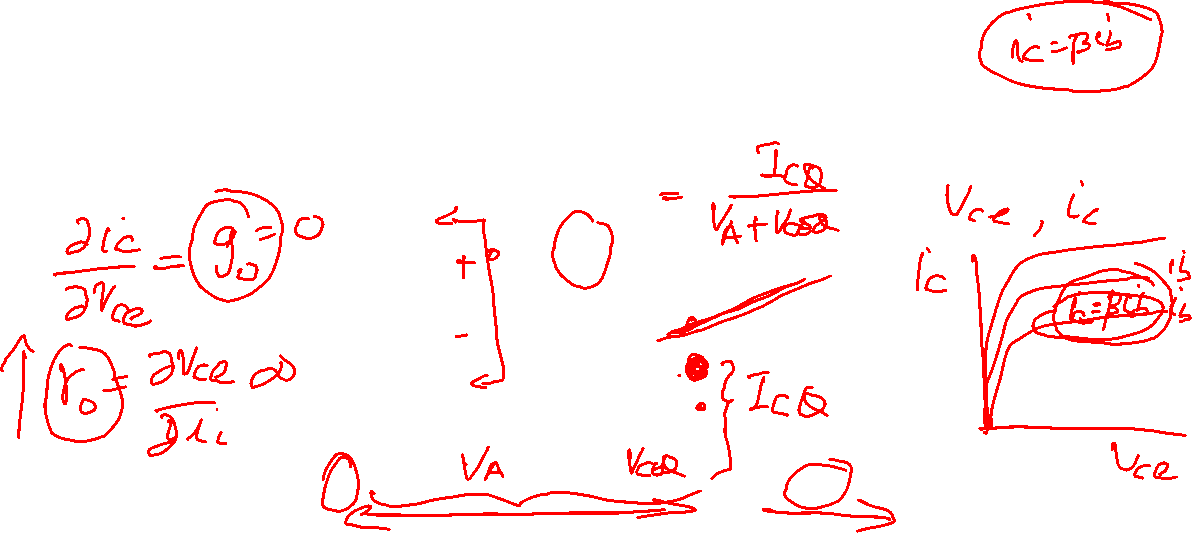 ic = βib
∂ic/∂Vce = g₀ = 0
r₀ = ∂Vce/∂ic ∞
+
-
= ICQ/(VA + VCEQ)
ICQ
VA VCEQ
Vce, ic
ic
ib
ib
ic = βib
Vce